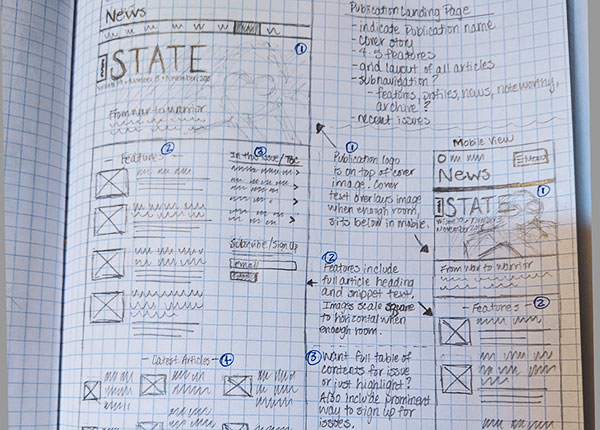 News
①
STATE
From War to Warrior
- Features - ②
③
In this issue/TOC
Subscribe/Sign Up
email
- Latest Articles - ④
Publication Landing Page
- indicate Publication name
- cover story
- 4-5 features
- grid layout of all articles
- subnavigation?
- features, profiles, news, noteworthy,
archive?
- recent issues
①
Publication logo
is on top of cover
image. Cover
text overlays image
when enough room,
sits below in mobile.
②
Features include
full article heading
and snippet text.
Images scale square
to horizontal when
enough room.
③ Want full table of
contents for issue
or just highlight?
Also include prominent
way to sign up for
issues.
Mobile View
Menu
News
①
STATE
From War to Warrior
- Features - ②